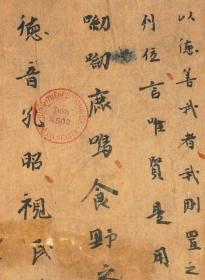 以德善我者我則置之
列位言唯賢是用
呦呦鹿鳴食野之
德音孔昭視民
DON
4502